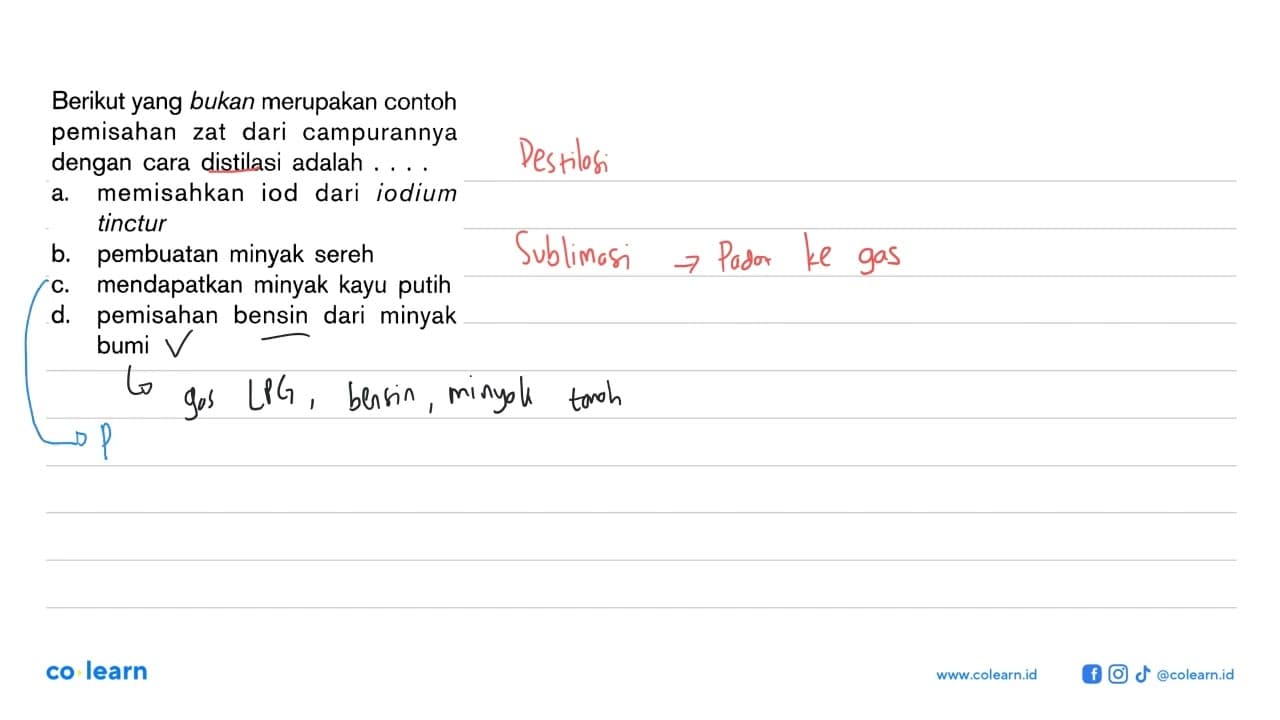 Berikut yang bukan merupakan contoh
pemisahan zat dari campurannya
dengan cara distilasi adalah . . . .
Destilasi
a. memisahkan iod dari iodium
tinctur
b. pembuatan minyak sereh
Sublimasi → Padat ke gas
c. mendapatkan minyak kayu putih
d. pemisahan bensin dari minyak
bumi ✓
↳ gas LPG, bensin, minyak tanah
→ P
co learn
www.colearn.id
@colearn.id